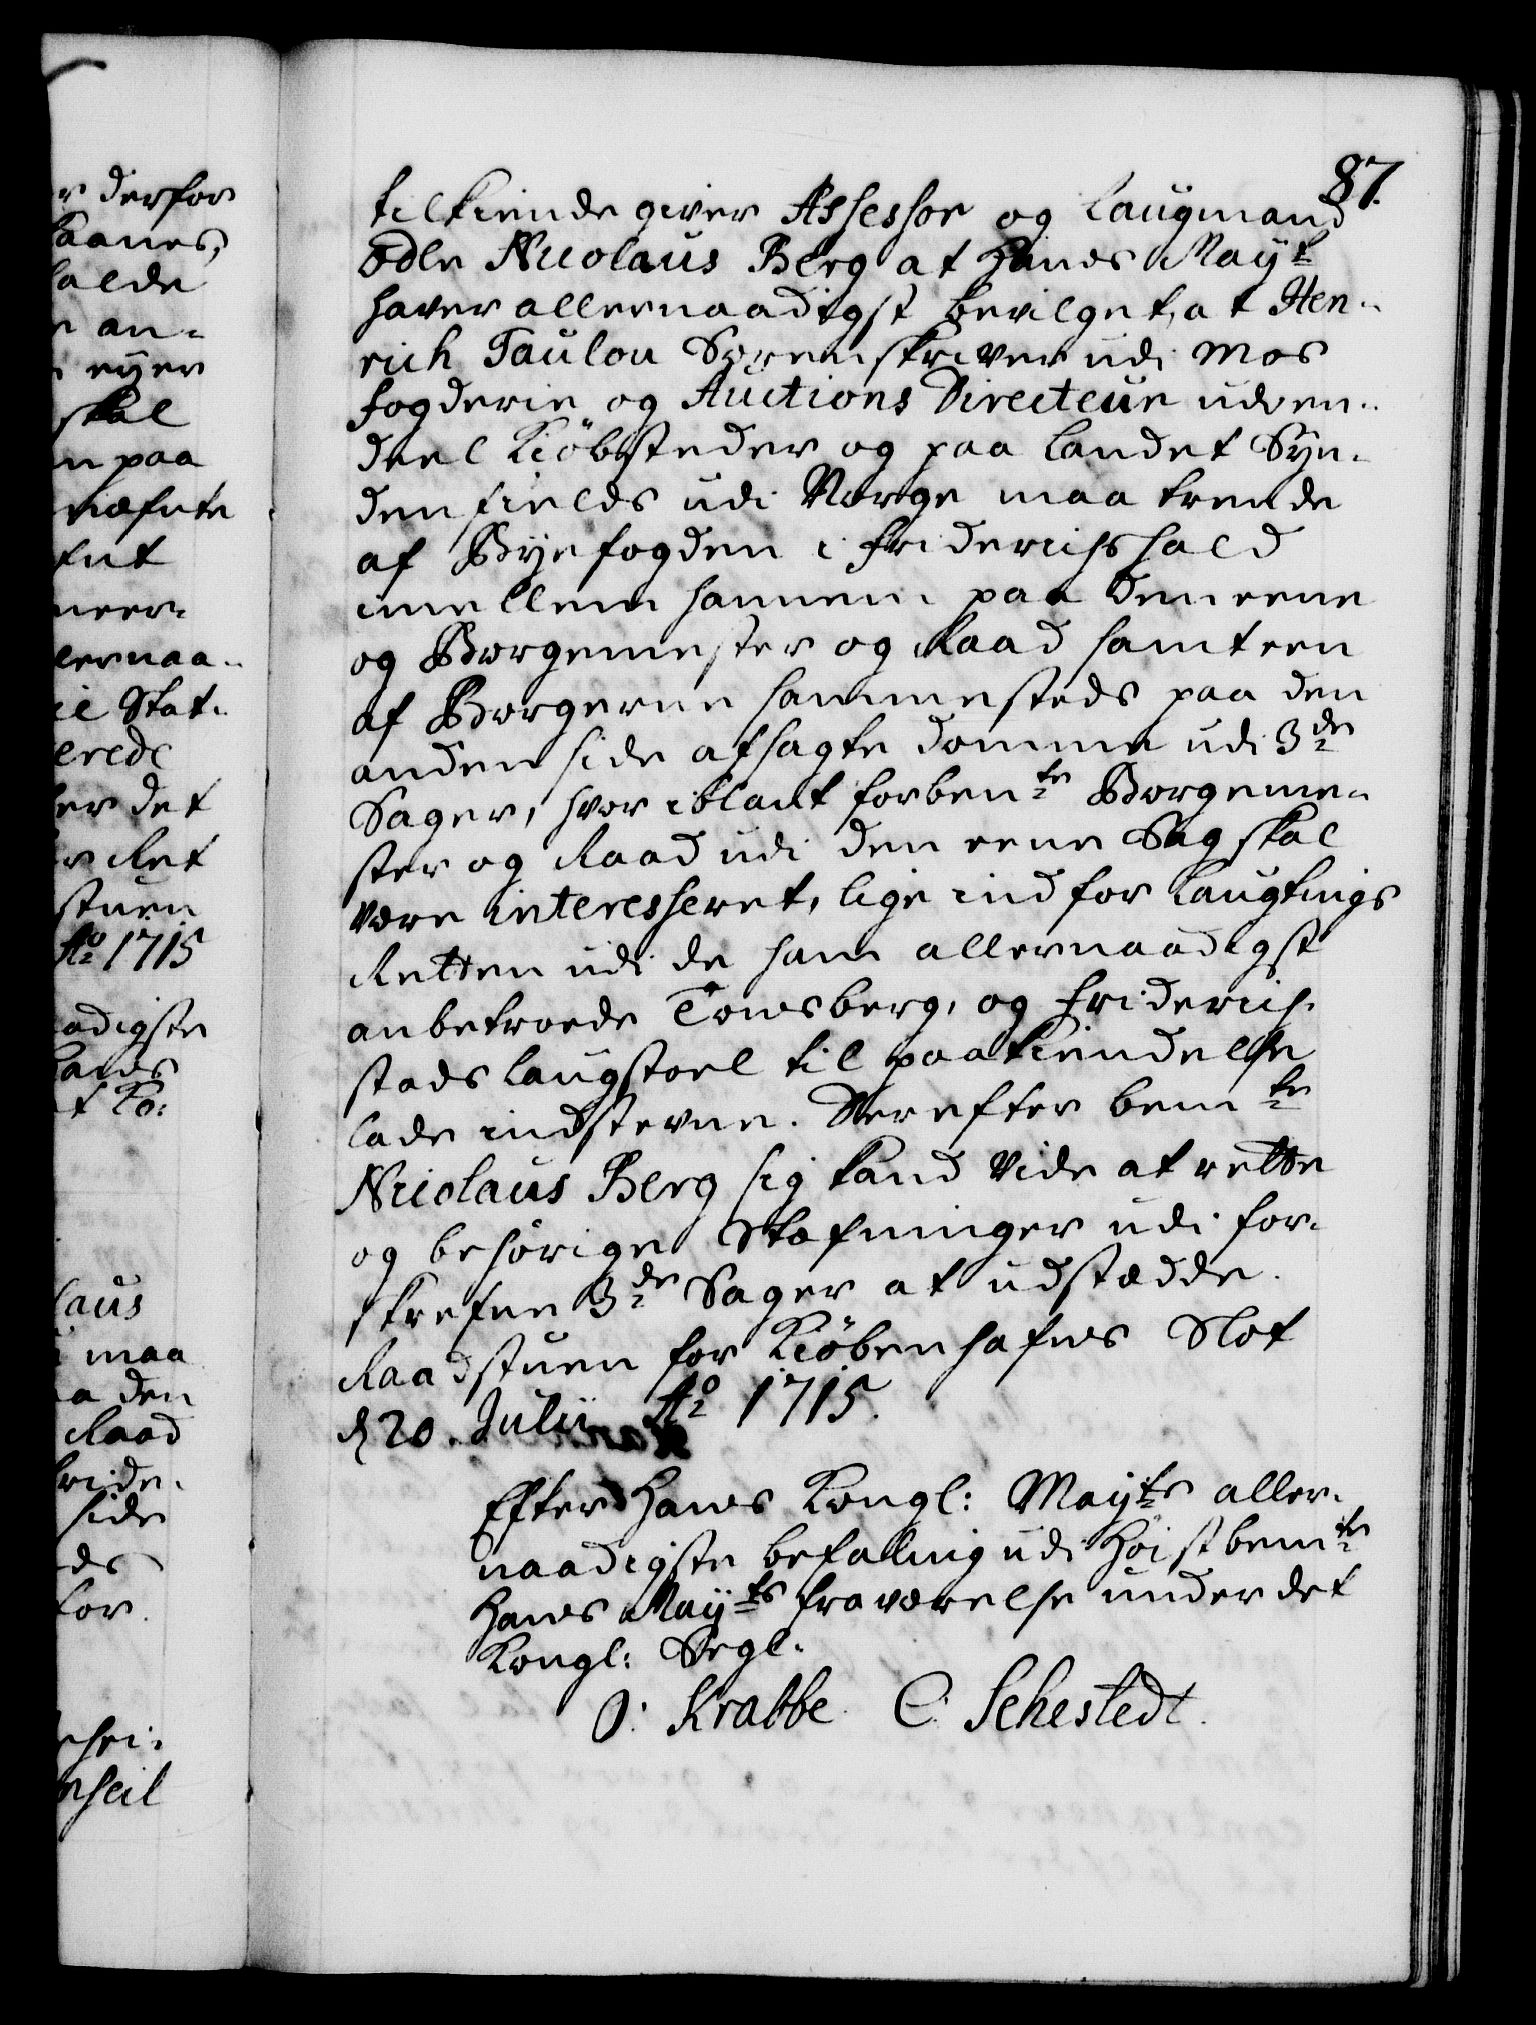 87.
tilkiende giver Assessor og Laugmand
ædle Nicolaus Berg at Hands Mayt
haver allernaadigst bevilget, at Hen-
rich Taulou Sorenskriver udi Mos
fogderie og Auctions Directeur udi en
deel Kiöbsteder og paa Landet Syn-
denfields udi Norge maa trende
af Byefogden i Friderichshald
imellem hannem paa den eene
og Borgemester og Raad samt een
af Borgerne sammesteds paa den
anden side afsagte domme udi 3de
Sager, hvor iblant forbente Borgeme-
ster og Raad udi den eene Sag skal
være interesseret, lige ind for Laugtings
Retten udi de ham allernaadigst
anbetroede Tonsberg, og Friderich-
stads Laugstoel til paakiendelse
lade indstevne. Derefter bemte
Nicolaus Berg sig kand vide at rette
og behörige Stæfninger udi for-
skrefne 3de Sager at udstædde.
Raadstuen for Kiöbenhafns Slot
d 20. Julii Ao 1715.
Efter Hans Kongl: Mayts aller-
naadigste befaling udi Höistbemte
Hans Mayts fraværelse under det
Kongl: Segl.
O: Krabbe. C. Sehestedt.
derfor
an-
eyer
skal
paa
Stat-
det
Ret
stuen
Ao 1715
adigste
laus
maa
a den
Raad
side
ds
for